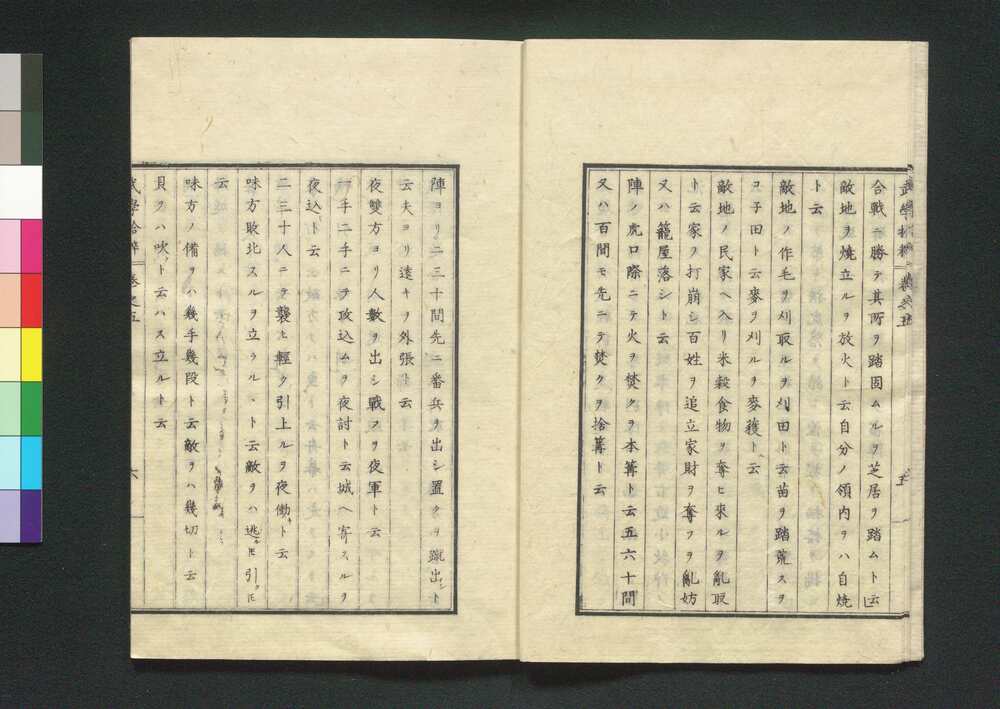 合戰ニ勝テ其所ヲ踏固ムルヲ芝居ヲ踏ムト云
敵地ヲ燒立ルヲ放火ト云自分ノ領内ヲハ自燒
ト云
敵地ノ作毛ヲ刈取ルヲ刈田ト云苗ヲ踏荒スヲ
コ子田ト云麥ヲ刈ルヲ麥穫ト云
敵地ノ民家ヘ入リ米穀食物ヲ奪ヒ來ルヲ亂取
ト云家ヲ打崩シ百姓ヲ追立家財ヲ奪フヲ亂妨
又ハ籠屋落シト云
陣ノ虎口際ニテ火ヲ焚クヲ本篝ト云五六十間
又ハ百間モ先ニテ焚クヲ捨篝ト云
陣ヨリ二三十間先ニ番兵ヲ出シ置クヲ蹴出シト
云夫ヨリ遠キヲ外張ト云
夜雙方ヨリ人數ヲ出シ戰フヲ夜軍ト云
一手二手ニテ攻込ムヲ夜討ト云城ヘ寄スルヲ
夜込ト云
二三十人ニテ襲ヒ輕ク引上ルヲ夜働キト云
味方敗北スルヲ立ラルヽト云敵ヲハ逃ルトモ引クトモ
云
味方ノ備ヲハ幾手幾段ト云敵ヲハ幾切ト云
貝ヲハ吹クト云ハス立ルト云
武學拾粹 卷之五 六